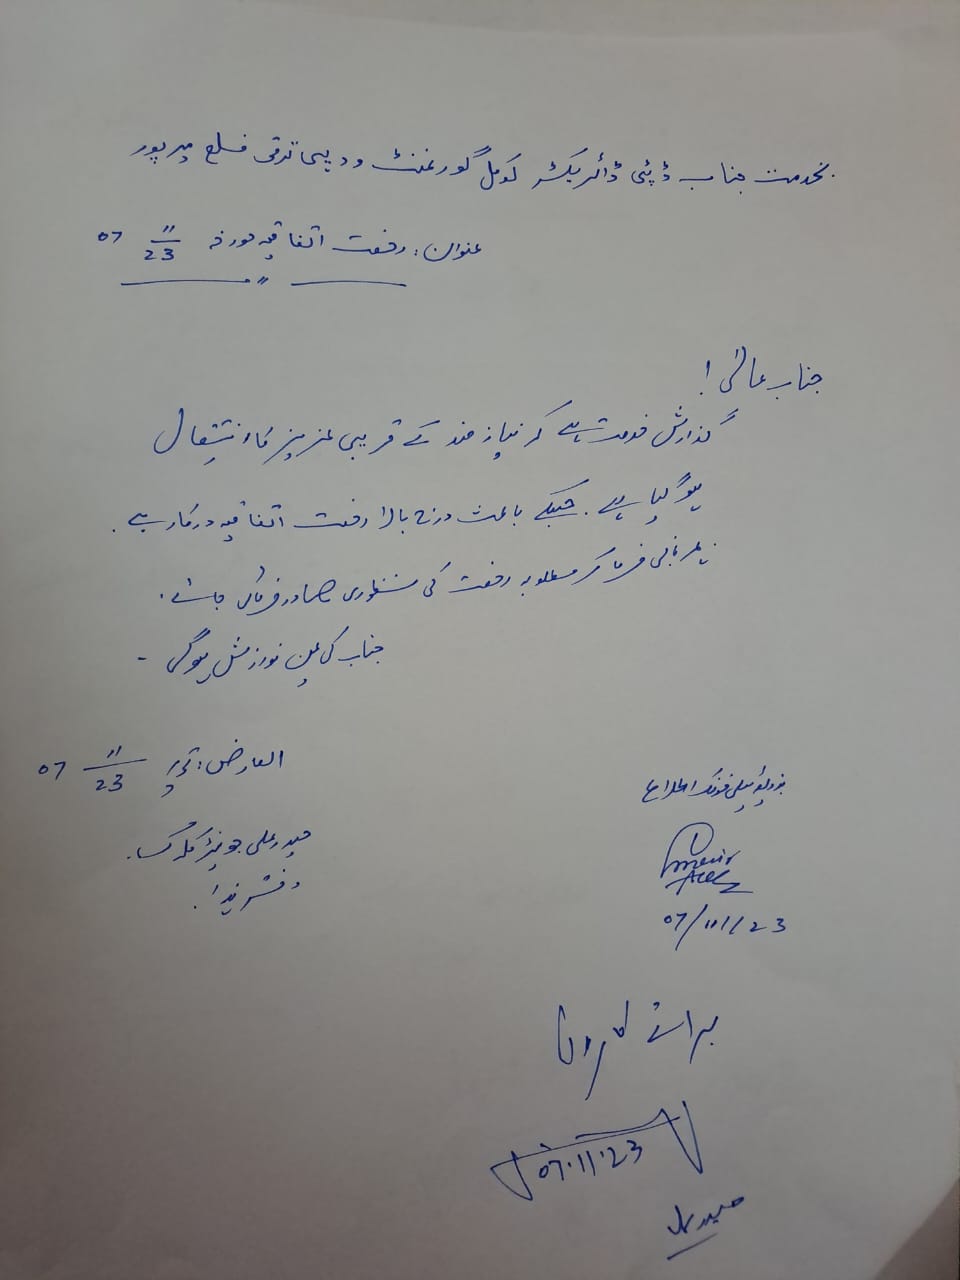 بخدمت جناب ڈپٹی ڈائریکٹر لوکل گورنمنٹ و دیہی ترقی ضلع میرپور
عنوان: رخصت اتفاقیہ مورخہ 07/11/23
جناب عالی!
گذارش خدمت ہے کہ نیاز مند کے قریبی عزیز کا انتقال
ہو گیا ہے۔ جسکے باعث درج بالا رخصت اتفاقیہ درکار ہے۔
مہربانی فرما کر مطلوبہ رخصت کی منظوری صادر فرمائی جائے۔
جناب کی عین نوازش ہوگی -
العارض: تحریر 07/11/23
حیدر علی جونیئر کلرک
دفتر ہذا۔
بذریعہ ٹیلی فونک اطلاع
07/11/23
برائے کاروائی
07.11.23